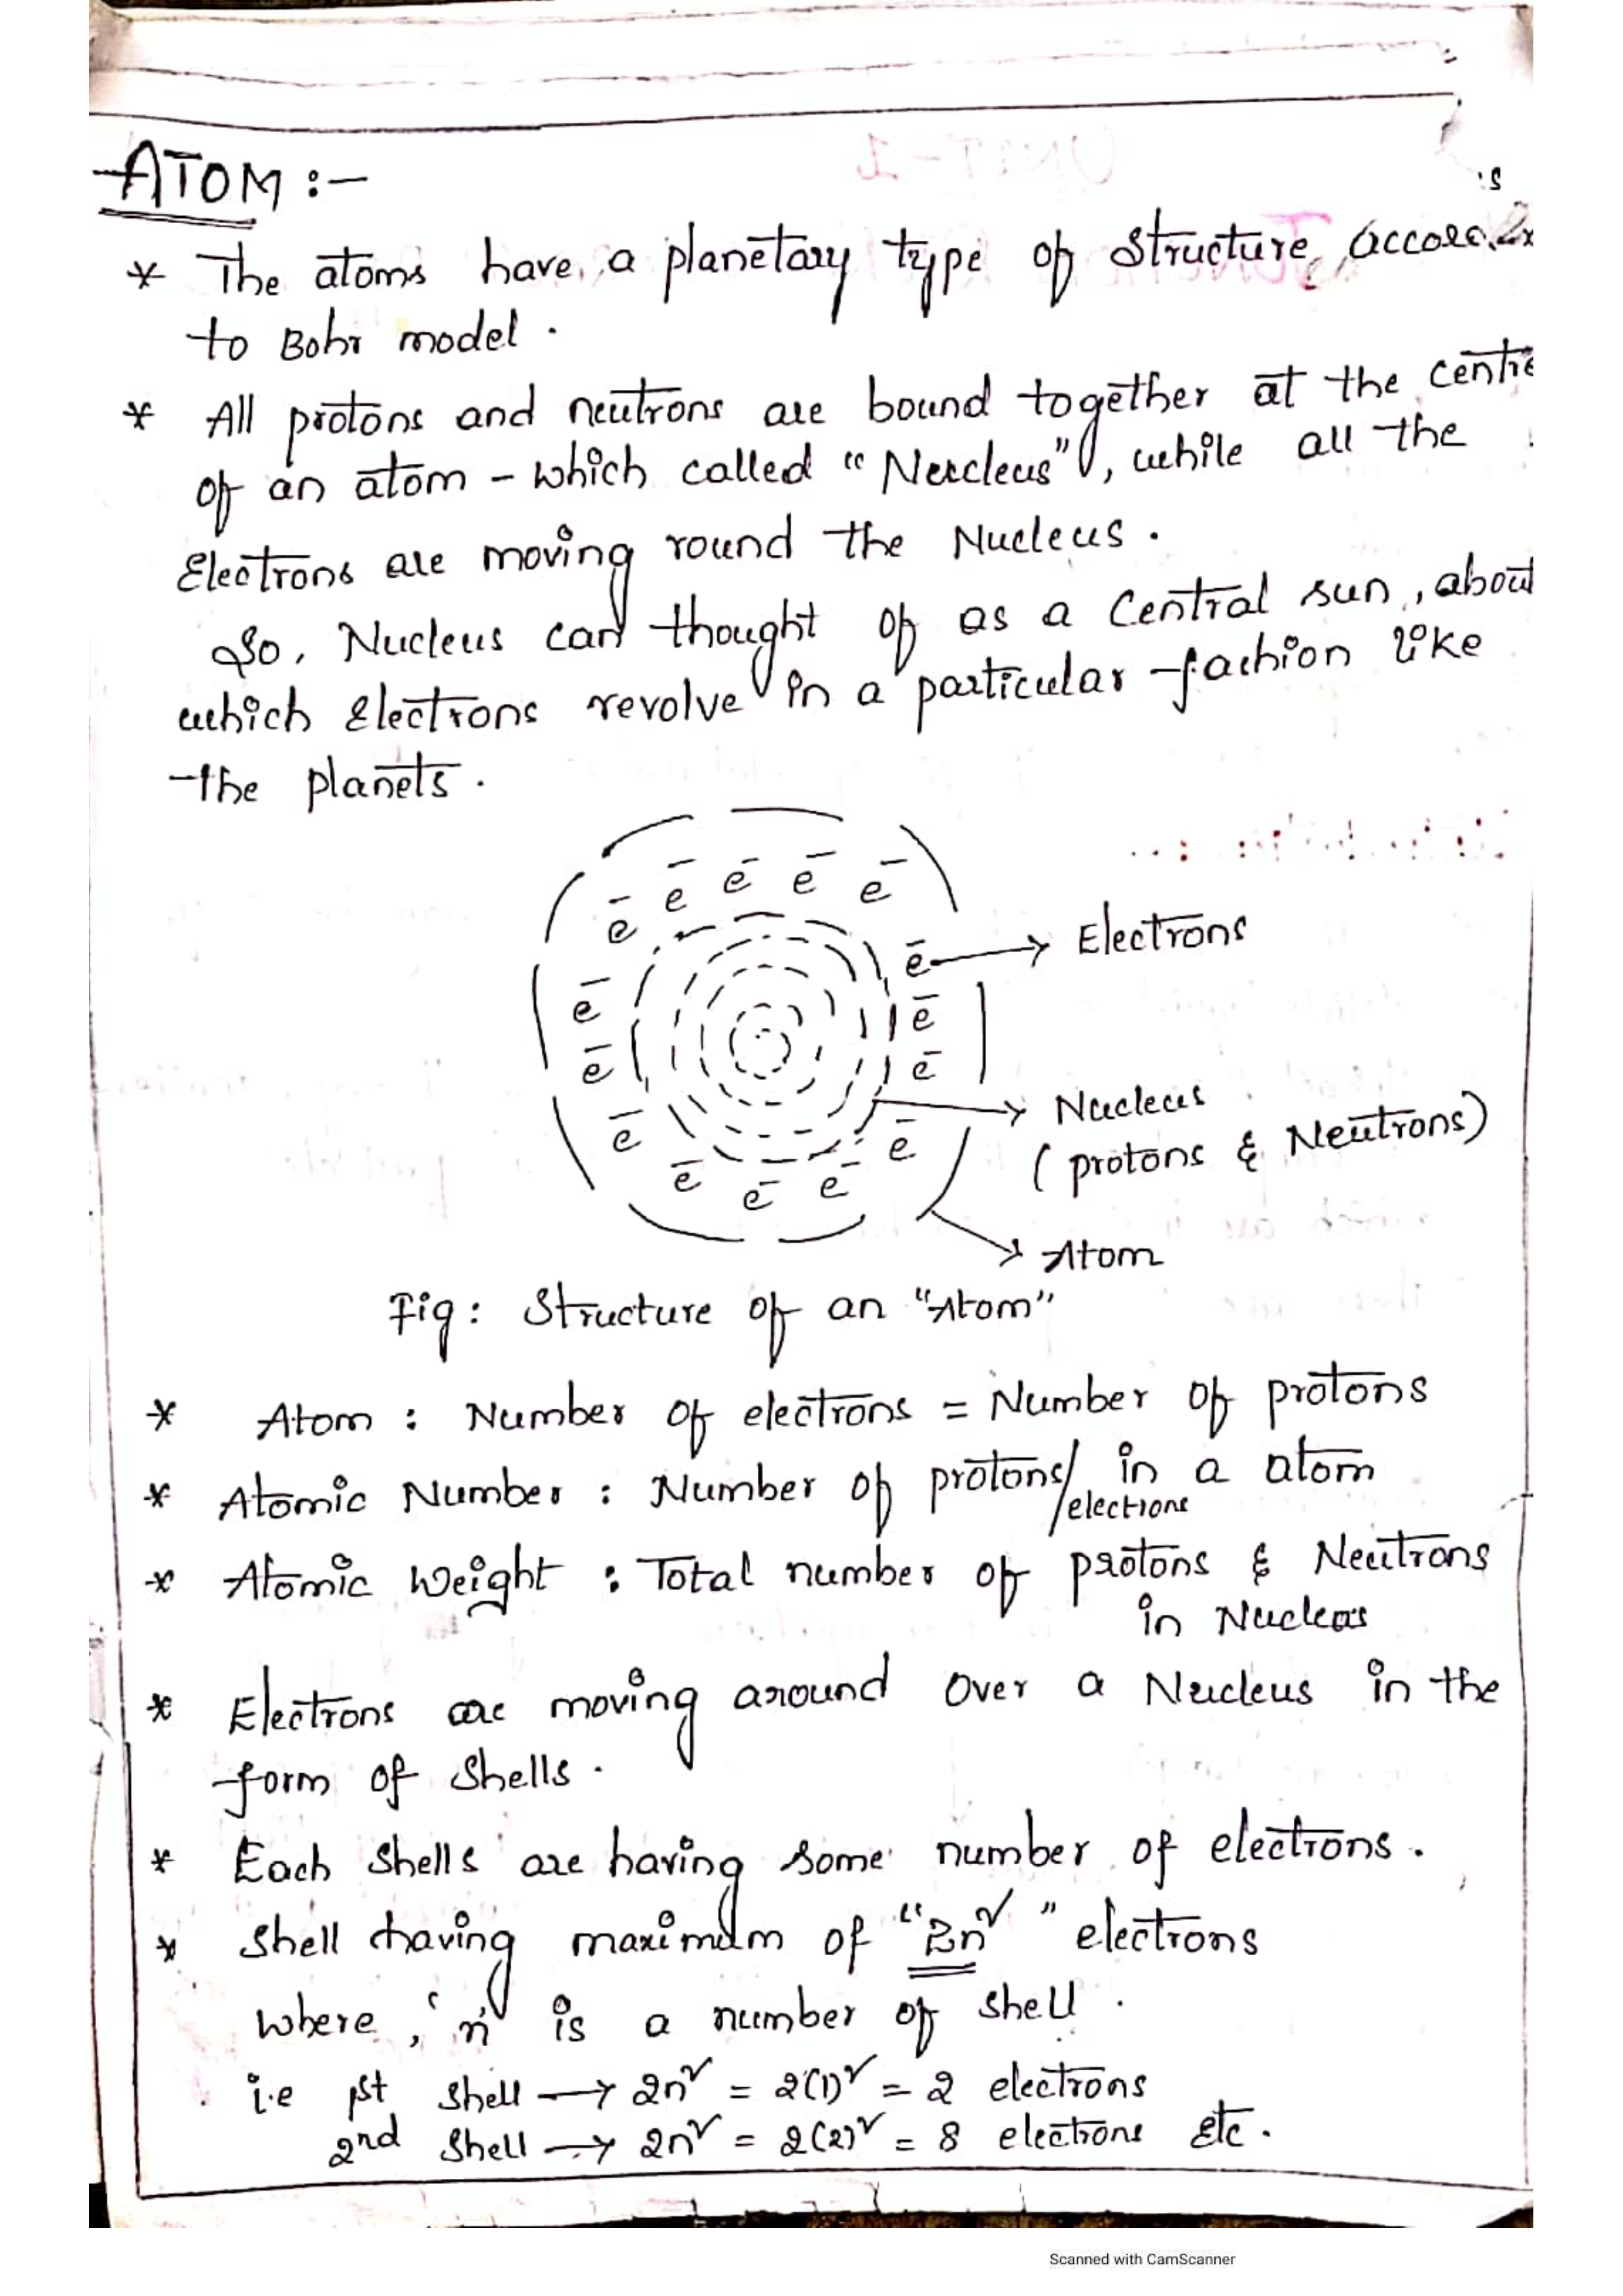 ATOM :-
* The atoms have a planetary type of structure,
to Bohr model.
* All protons and neutrons are bound together at the centre
of an atom - which called "Nucleus", while all the
Electrons are moving round the Nucleus.
So, Nucleus can thought of as a Central sun, about
which Electrons revolve in a particular fachion like
the planets.
e⁻ e⁻ e⁻ e⁻ e⁻
e⁻ → Electrons
e⁻ e⁻
e⁻ e⁻
→ Nucleus
(protons & Neutrons)
e⁻ e⁻
e⁻ e⁻ e⁻
→ Atom
Fig: Structure of an "Atom"
* Atom : Number of electrons = Number of protons
* Atomic Number : Number of protons/electrons in a atom
* Atomic Weight : Total number of protons & Neutrons
in Nucleus
* Electrons are moving around over a Nucleus in the
form of shells.
* Each shells are having some number of electrons.
* Shell having maximum of "2n²" electrons
where, 'n' is a number of shell.
i.e 1st shell → 2n² = 2(1)² = 2 electrons
2nd shell → 2n² = 2(2)² = 8 electrons etc.
Scanned with CamScanner